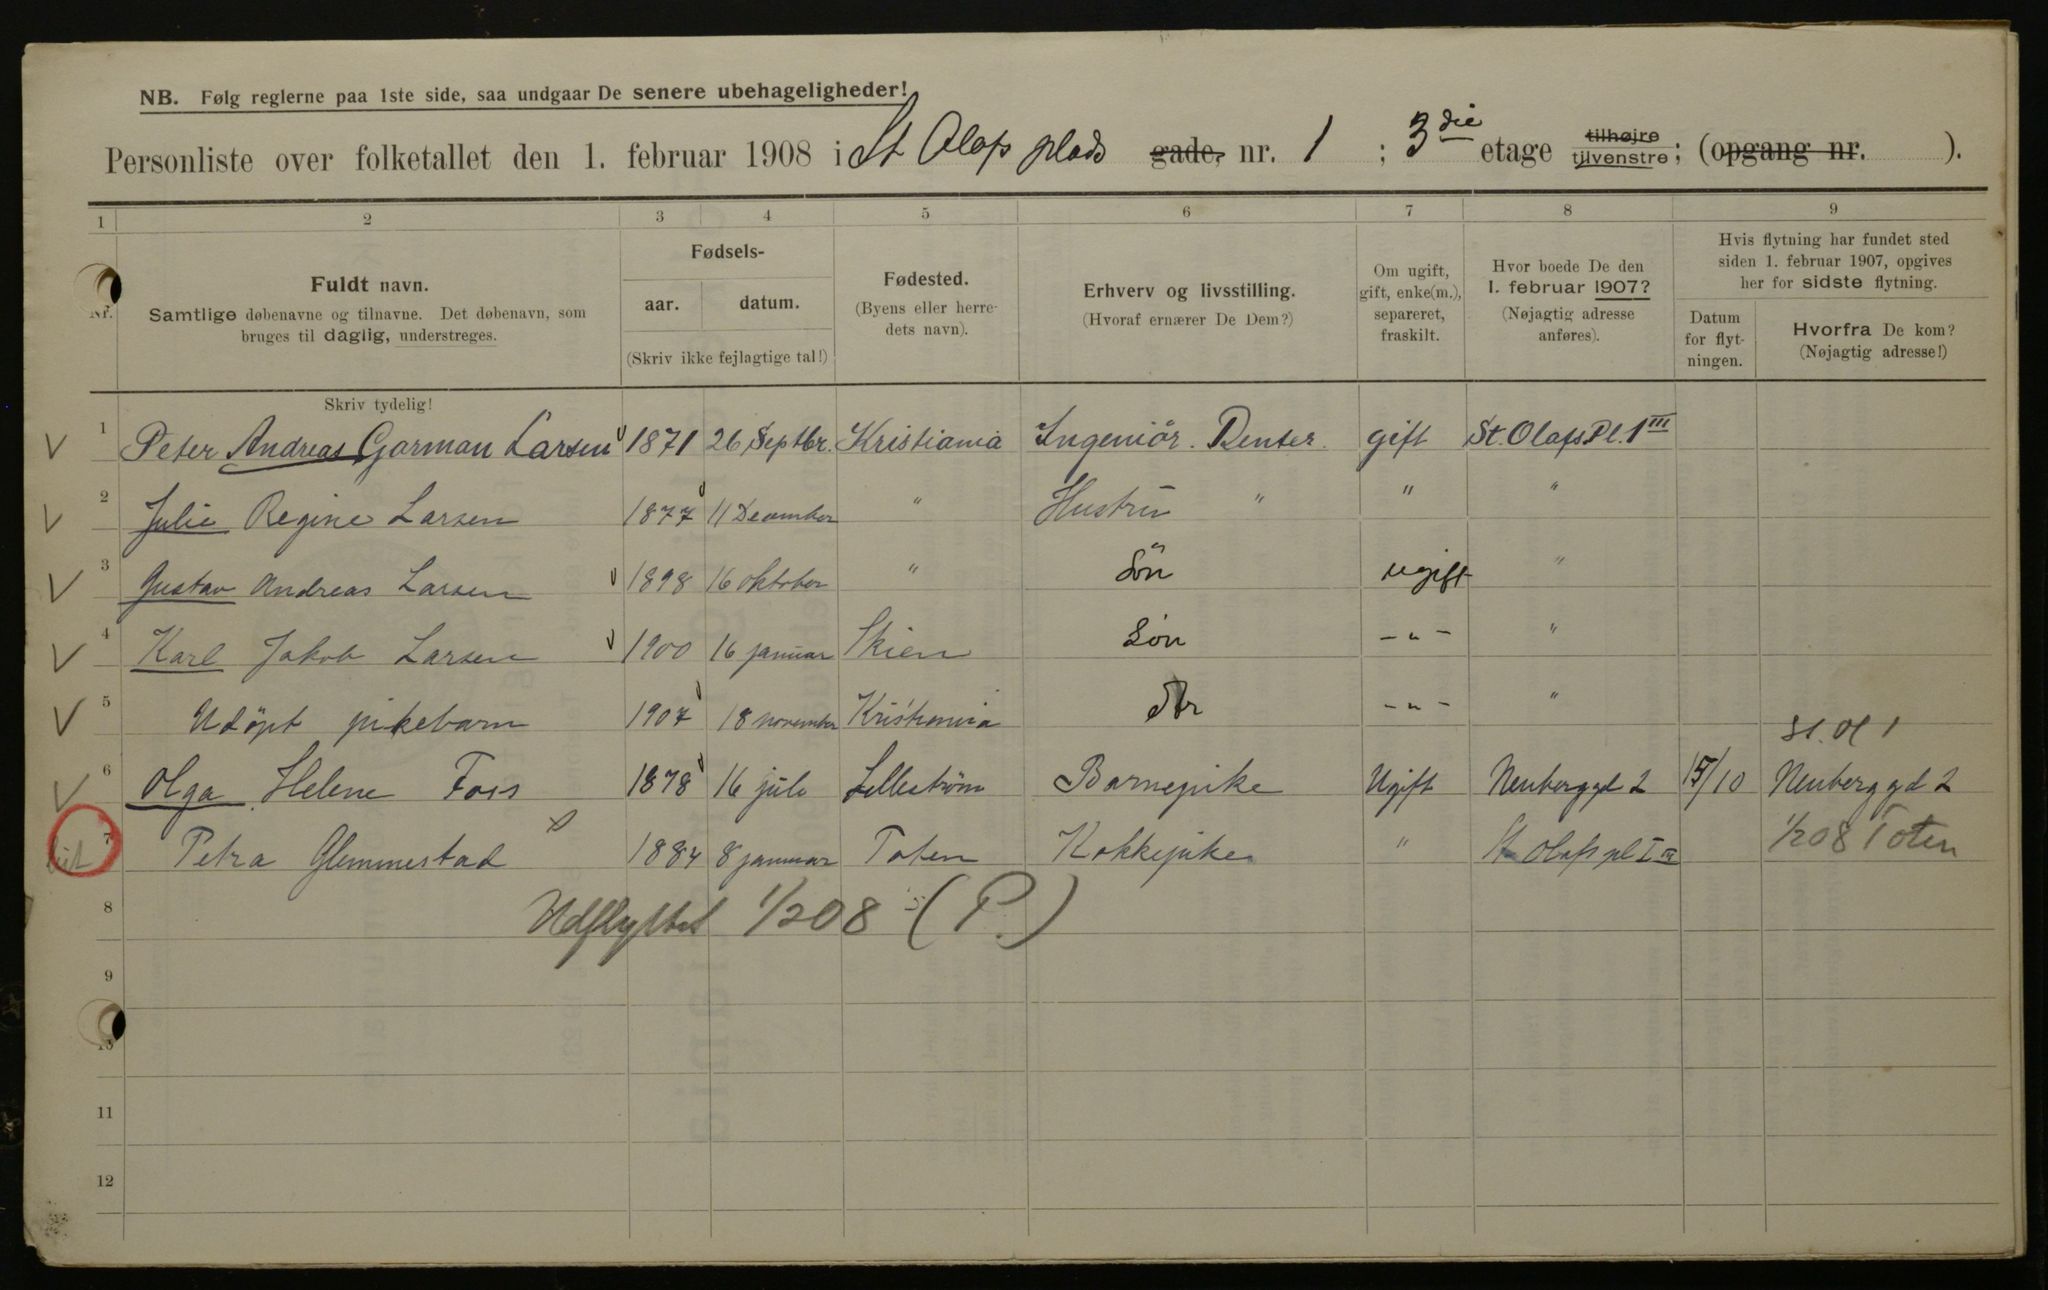 NB. Følg reglerne paa 1ste side, saa undgaar De senere ubehageligheder!
Personliste over folketallet den 1. februar 1908 i St Olafs plads gade, nr. 1 ; 3die etage tilhøjre tilvenstre; (opgang nr. ).
1 2 3 4 5 6 7 8 9
Nr.
Fuldt navn.
Samtlige døbenavne og tilnavne. Det døbenavn, som
bruges til daglig, understreges.
Skriv tydelig!
Fødsels-
aar. datum.
(Skriv ikke fejlagtige tal!)
Fødested.
(Byens eller herre-
dets navn).
Erhverv og livsstilling.
(Hvoraf ernærer De Dem?)
Om ugift,
gift, enke(m.),
separeret,
fraskilt.
Hvor boede De den
1. februar 1907?
(Nøjagtig adresse
anføres).
Hvis flytning har fundet sted
siden 1. februar 1907, opgives
her for sidste flytning.
Datum
for flyt-
ningen.
Hvorfra De kom?
(Nøjagtig adresse!)
1 Peter Andreas Garman Larsen 1871 26 Septbr. Kristiania Ingeniör. Renter. gift St. Olafs Pl. 1 III
2 Julie Regine Larsen 1877 11 December " Hustru " " "
3 Gustav Andreas Larsen 1898 16 oktober " Sön ugift "
4 Karl Jakob Larsen 1900 16 januar Skien Sön -"- "
5 Udöpt pikebarn 1907 18 november Kristiania dtr -"- "
St. Ol 1
6 Olga Helene Foss 1878 16 juli Lilleström Barnepike Ugift Neuberggd 2 15/10 Neuberggd 2
7 Petra Glemmestad 1884 8 januar Toten Kokkepike " St Olafs pl I III 1/2 08 Toten
8 Udflyttet 1/2 08 (P.)
9
10
11
12